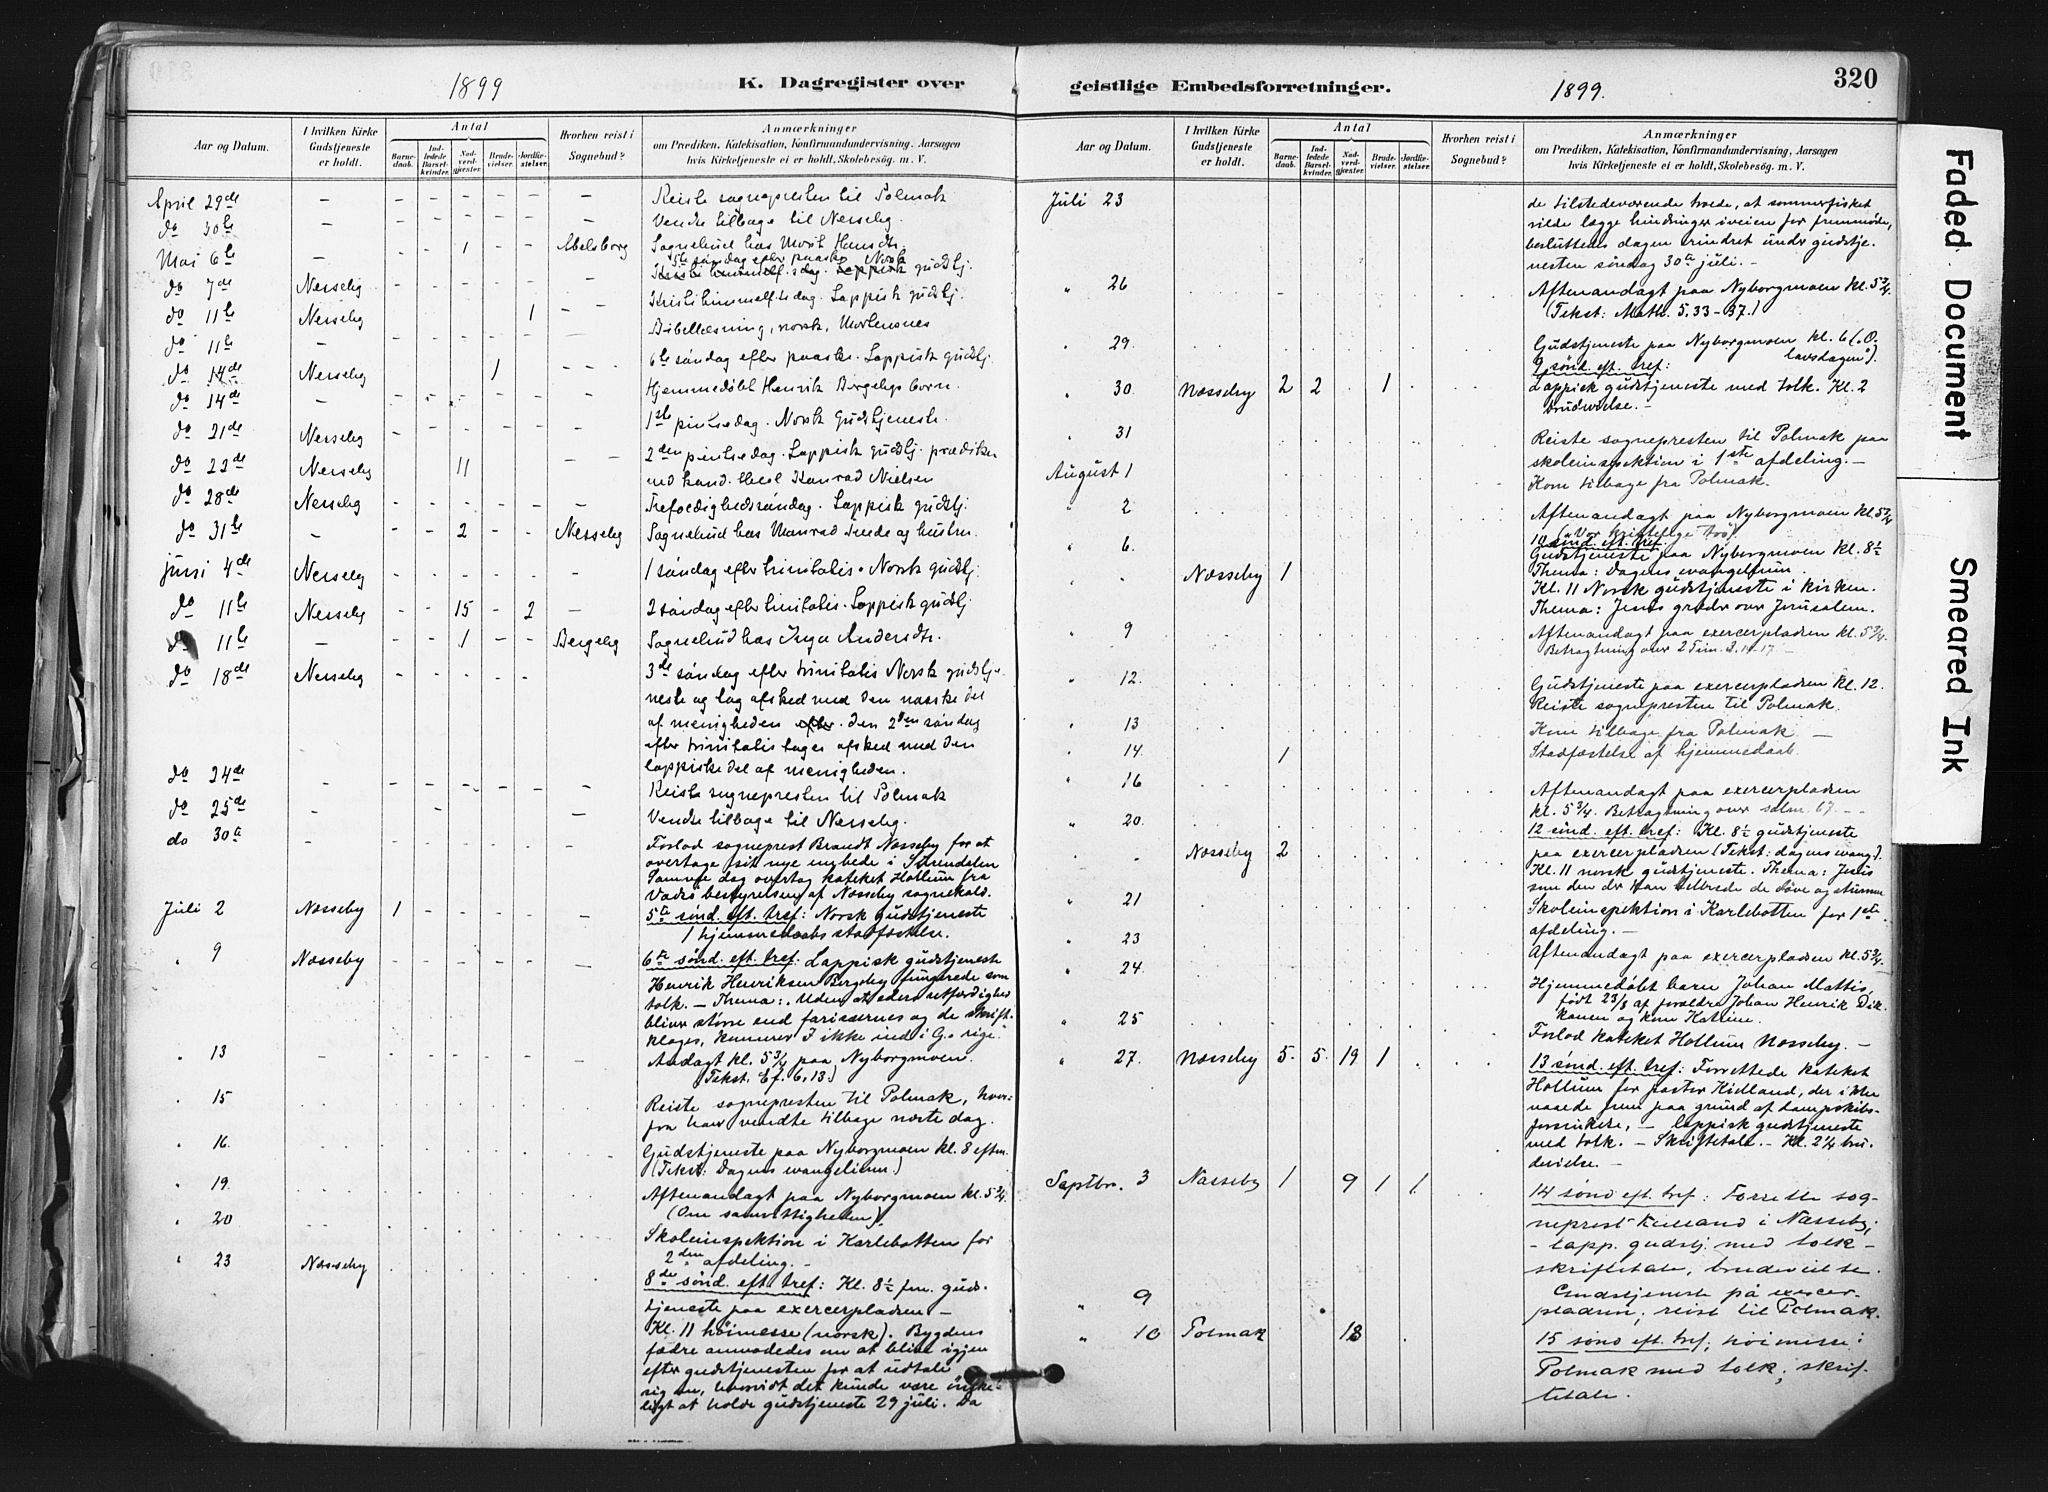 1899
K. Dagregister over
Aar og Datum.
I hvilken Kirke Gudstjeneste er holdt.
Antal
Barnedaab.
Indledede Barselkvinder.
Nadverdgjæster.
Brudevielser.
Jordfæstelser.
Hvorhen reist i Sognebud?
Anmærkninger
om Prædiken, Katekisation, Konfirmandundervisning, Aarsagen
hvis Kirketjeneste ei er holdt, Skolebesög. m. V.
April 29de - - - - - - - Reiste sognepresten til Polmak
do 30te - - - - - - - Vendte tilbage til Nesseby.
Mai 6te - - - 1 - - Abelsborg Sognebud hos Marit Hansdtr.
do 7de Nesseby 5te søndag efter paaske Norsk gudstj.
do 11te Nesseby 1 - Kristi himmelf.sdag. Lappisk gudstj.
do 11te - Bibellæsning, norsk, Mortensnes
do 14de Nesseby 1 6te søndag efter paaske. Lappisk gudstj.
do 14de - Hjemmedøbt Henrik Bergebys barn.
do 21de Nesseby 1ste pinsedag. Norsk Gudstjeneste
do 22de Nesseby 11 2den pintsedag. Lappisk gudstj. prædiken
ved kand. theol Konrad Nielsen
do 28de Nesseby Trefoldighedssøndag. Lappisk gudstj.
do 31te - 2 Nesseby Sognebud hos Monrad Trede og hustru
juni 4de Nesseby 1 søndag efter trinitatis. Norsk gudstj.
do 11te Nesseby 15 2 - 2 søndag efter trinitatis. Lappisk gudstj
do 11te - 1 Bergeby Sognebud hos Inga Andersdtr.
do 18de Nesseby 3de søndag efter trinitatis Norsk gudstje-
neste og tog afsked med den norske del
af menigheden efter. Den 2den søndag
efter trinitatis toges afsked med den
lappiske del af menigheden.
do 24de - Reiste sognepresten til Polmak
do 25de - Vendte tilbage til Nesseby.
do 30te - Forlod sogneprest Brandt Næsseby for at
overtage sit nye embede i Surendalen
Samme dag overtog kateket Hollum fra
Vadsø bestyrelsen af Næsseby sognekald.
Juli 2 Næsseby 1 - 5te sønd. eft. tref: Norsk Gudstjeneste
1 hjemmedaabs stadfæstelse.
" 9 Næsseby 6te sønd. eft. tref. Lappisk gudstjeneste
Henrik Henriksen Bergeby fungerede som
tolk. - Thema: "Uden at eders retfærdighed
bliver større end farisæernes og de skrift-
kloges, kommer I ikke ind i G.s rige"
" 13 - Andagt kl. 5 3/4 paa Nyborgmoen.
(Tekst. Ef. 6, 13.)
" 15 Reiste sognepresten til Polmak, hvor-
fra han vendte tilbage næste dag.
" 16. Gudstjeneste paa Nyborgmoen kl. 8 eftm.
(Tekst: Dagens evangelium.)
" 19 Aftenandagt paa Nyborgmoen kl. 5 3/4.
(Om samvittigheden).
" 20 Skoleinspektion i Karlebotten for
2den afdeling. -
" 23 Næsseby 8de sønd. eft. tref: Kl. 8½ fm. guds-
tjeneste paa exercerpladsen -
Kl. 11 høimesse (norsk). Bygdens
fædre anmodedes om at blive igjen
efter gudstjenesten for at udtale
sig om, hvorvidt det kunde være ønske-
ligt at holde gudstjeneste 29 juli. Da
geistlige Embedsforretninger.
1899.
320
Aar og Datum.
I hvilken Kirke Gudstjeneste er holdt.
Antal
Barnedaab.
Indledede Barselkvinder.
Nadverdgjæster.
Brudevielser.
Jordfæstelser.
Hvorhen reist i Sognebud?
Anmærkninger
om Prædiken, Katekisation, Konfirmandundervisning, Aarsagen
hvis Kirketjeneste ei er holdt, Skolebesög. m. V.
Juli 23 de tilstedeværende troede, at sommerfisket
vilde lægge hindringer iveien for fremmøde,
besluttedes dagen erindret under gudstje-
nesten søndag 30te juli. -
" 26 Aftenandagt paa Nyborgmoen kl. 5 3/4.
(Tekst: Math. 5, 33-37.)
" 29. Gudstjeneste paa Nyborgmoen kl. 6 ("O-
lavsdagen").
" 30. Næsseby 2 2 1 9 sønd. eft. tref:
Lappisk gudstjeneste med tolk. Kl. 2
brudevielse. -
" 31 Reiste sognepresten til Polmak paa
skoleinspektion i 1ste afdeling. -
August 1 Kom tilbage fra Polmak.
" 2 Aftenandagt paa Nyborgmoen kl. 5 3/4
" 6. 10 sønd. eft. tref.
Gudstjeneste paa Nyborgmoen kl. 8½
Thema: Dagens evangelium.
" " Næsseby 1 Kl. 11 Norsk gudstjeneste i kirken.
Thema: Jesus græder over Jerusalem.
" 9 Aftenandagt paa exercerpladsen kl. 5 3/4.
Betragtning over 2 Tim. 3, 14-17 -
" 12. Gudstjeneste paa exercerpladsen kl. 12.
Reiste sognepresten til Polmak.
" 13 Kom tilbage fra Polmak -
" 14. 1 Stadfæstelse af hjemmedaab.
" 16 Aftenandagt paa exercerpladsen
kl. 5 3/4. Betragtning over salm. 67. -
" 20. 12 sønd. eft. tref: Kl. 8½ gudstjeneste
paa exercerpladsen (Tekst: dagens evang.).
" " Næsseby 2 Kl. 11 norsk gudstjeneste. Thema: Jesus
som den der kan helbrede de døve og stumme
" 21 Skoleinspektion i Karlebotten for 1ste
afdeling. -
" 23 Aftenandagt paa exercerpladsen kl. 5 3/4.
" 24. Hjemmedøbt barn Johan Mattis,
født 23/8 af forældre Johan Henrik Dik-
kanen og kone Katrine.
" 25 Forlod kateket Hollum Næsseby. -
" 27. Næsseby 5. 5. 19 1 13 sønd. eft. tref: Forrettede kateket
Hollum for pastor Kielland, der ikke
naaede frem paa grund af dampskibs-
forsinkelse, - lappisk gudstjeneste
med tolk. - Skriftetale. - Kl. 2¼ bru-
devielse. -
Septbr. 3 Næsseby 1 9 1 1 14 sønd eft. tref: Forrette sog-
neprest Kielland i Næsseby;
- lapp. gudstj. med tolk -
skriftetale, brudevielse.
" 9 Gudstjeneste på exercer-
pladsen; reist til Polmak.
" 10 Polmak 18 15 sønd eft. tref; høimesse i
Polmak med tolk; skrif-
tetale.
Faded Document
Smeared Ink